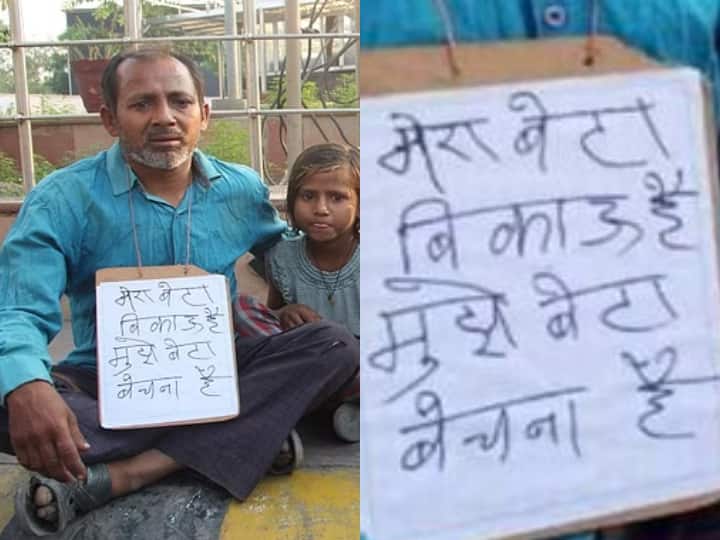 मेरा बेटा
बिकाऊ है
मुझे बेटा
बेचना है
मेरा बेटा
बिकाऊ है
मुझे बेटा
बेचना है